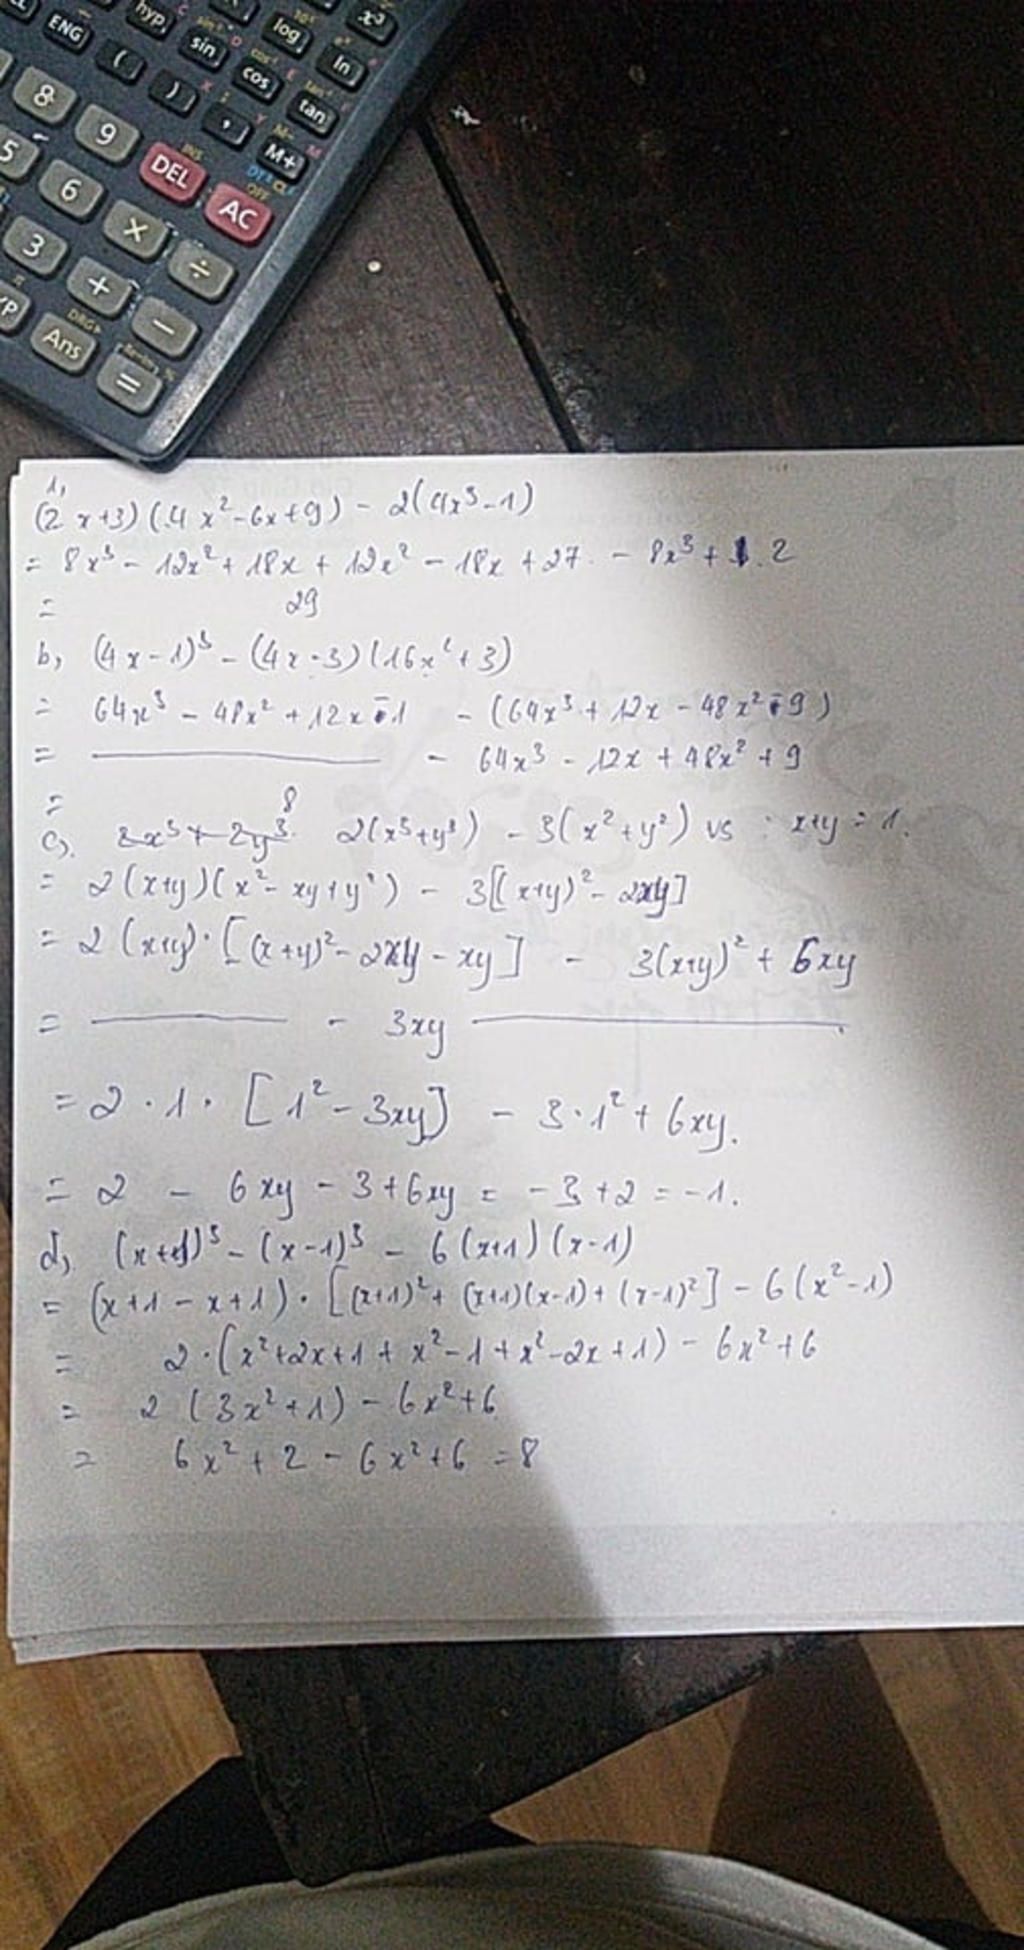 ENG
hyp
sin
log
x³
cos
ln
(
)
,
tan
8
9
DEL
M+
5
6
×
AC
3
+
÷
Ans
−
=
1,
(2x+3)(4x²-6x+9) - 2(4x³-1)
= 8x³ - 12x² + 18x + 12x² - 18x + 27 - 8x³ + 1.2
= 29
b, (4x-1)³ - (4x-3)(16x²+3)
= 64x³ - 48x² + 12x - 1 - (64x³ + 12x - 48x² - 9)
= - 64x³ - 12x + 48x² + 9
= 8
c). 2x³ + 2y³ 2(x³+y³) - 3(x²+y²) vs : x+y = 1.
= 2(x+y)(x²-xy+y²) - 3[(x+y)²-2xy]
= 2(x+y)·[(x+y)²-2xy-xy] - 3(x+y)² + 6xy
= - 3xy
= 2·1·[1²-3xy] - 3·1² + 6xy.
= 2 - 6xy - 3 + 6xy = -3 + 2 = -1.
d, (x+1)³ - (x-1)³ - 6(x+1)(x-1)
= (x+1-x+1)·[(x+1)² + (x+1)(x-1) + (x-1)²] - 6(x²-1)
= 2·(x²+2x+1+x²-1+x²-2x+1) - 6x²+6
= 2(3x²+1) - 6x²+6
= 6x²+2-6x²+6 = 8